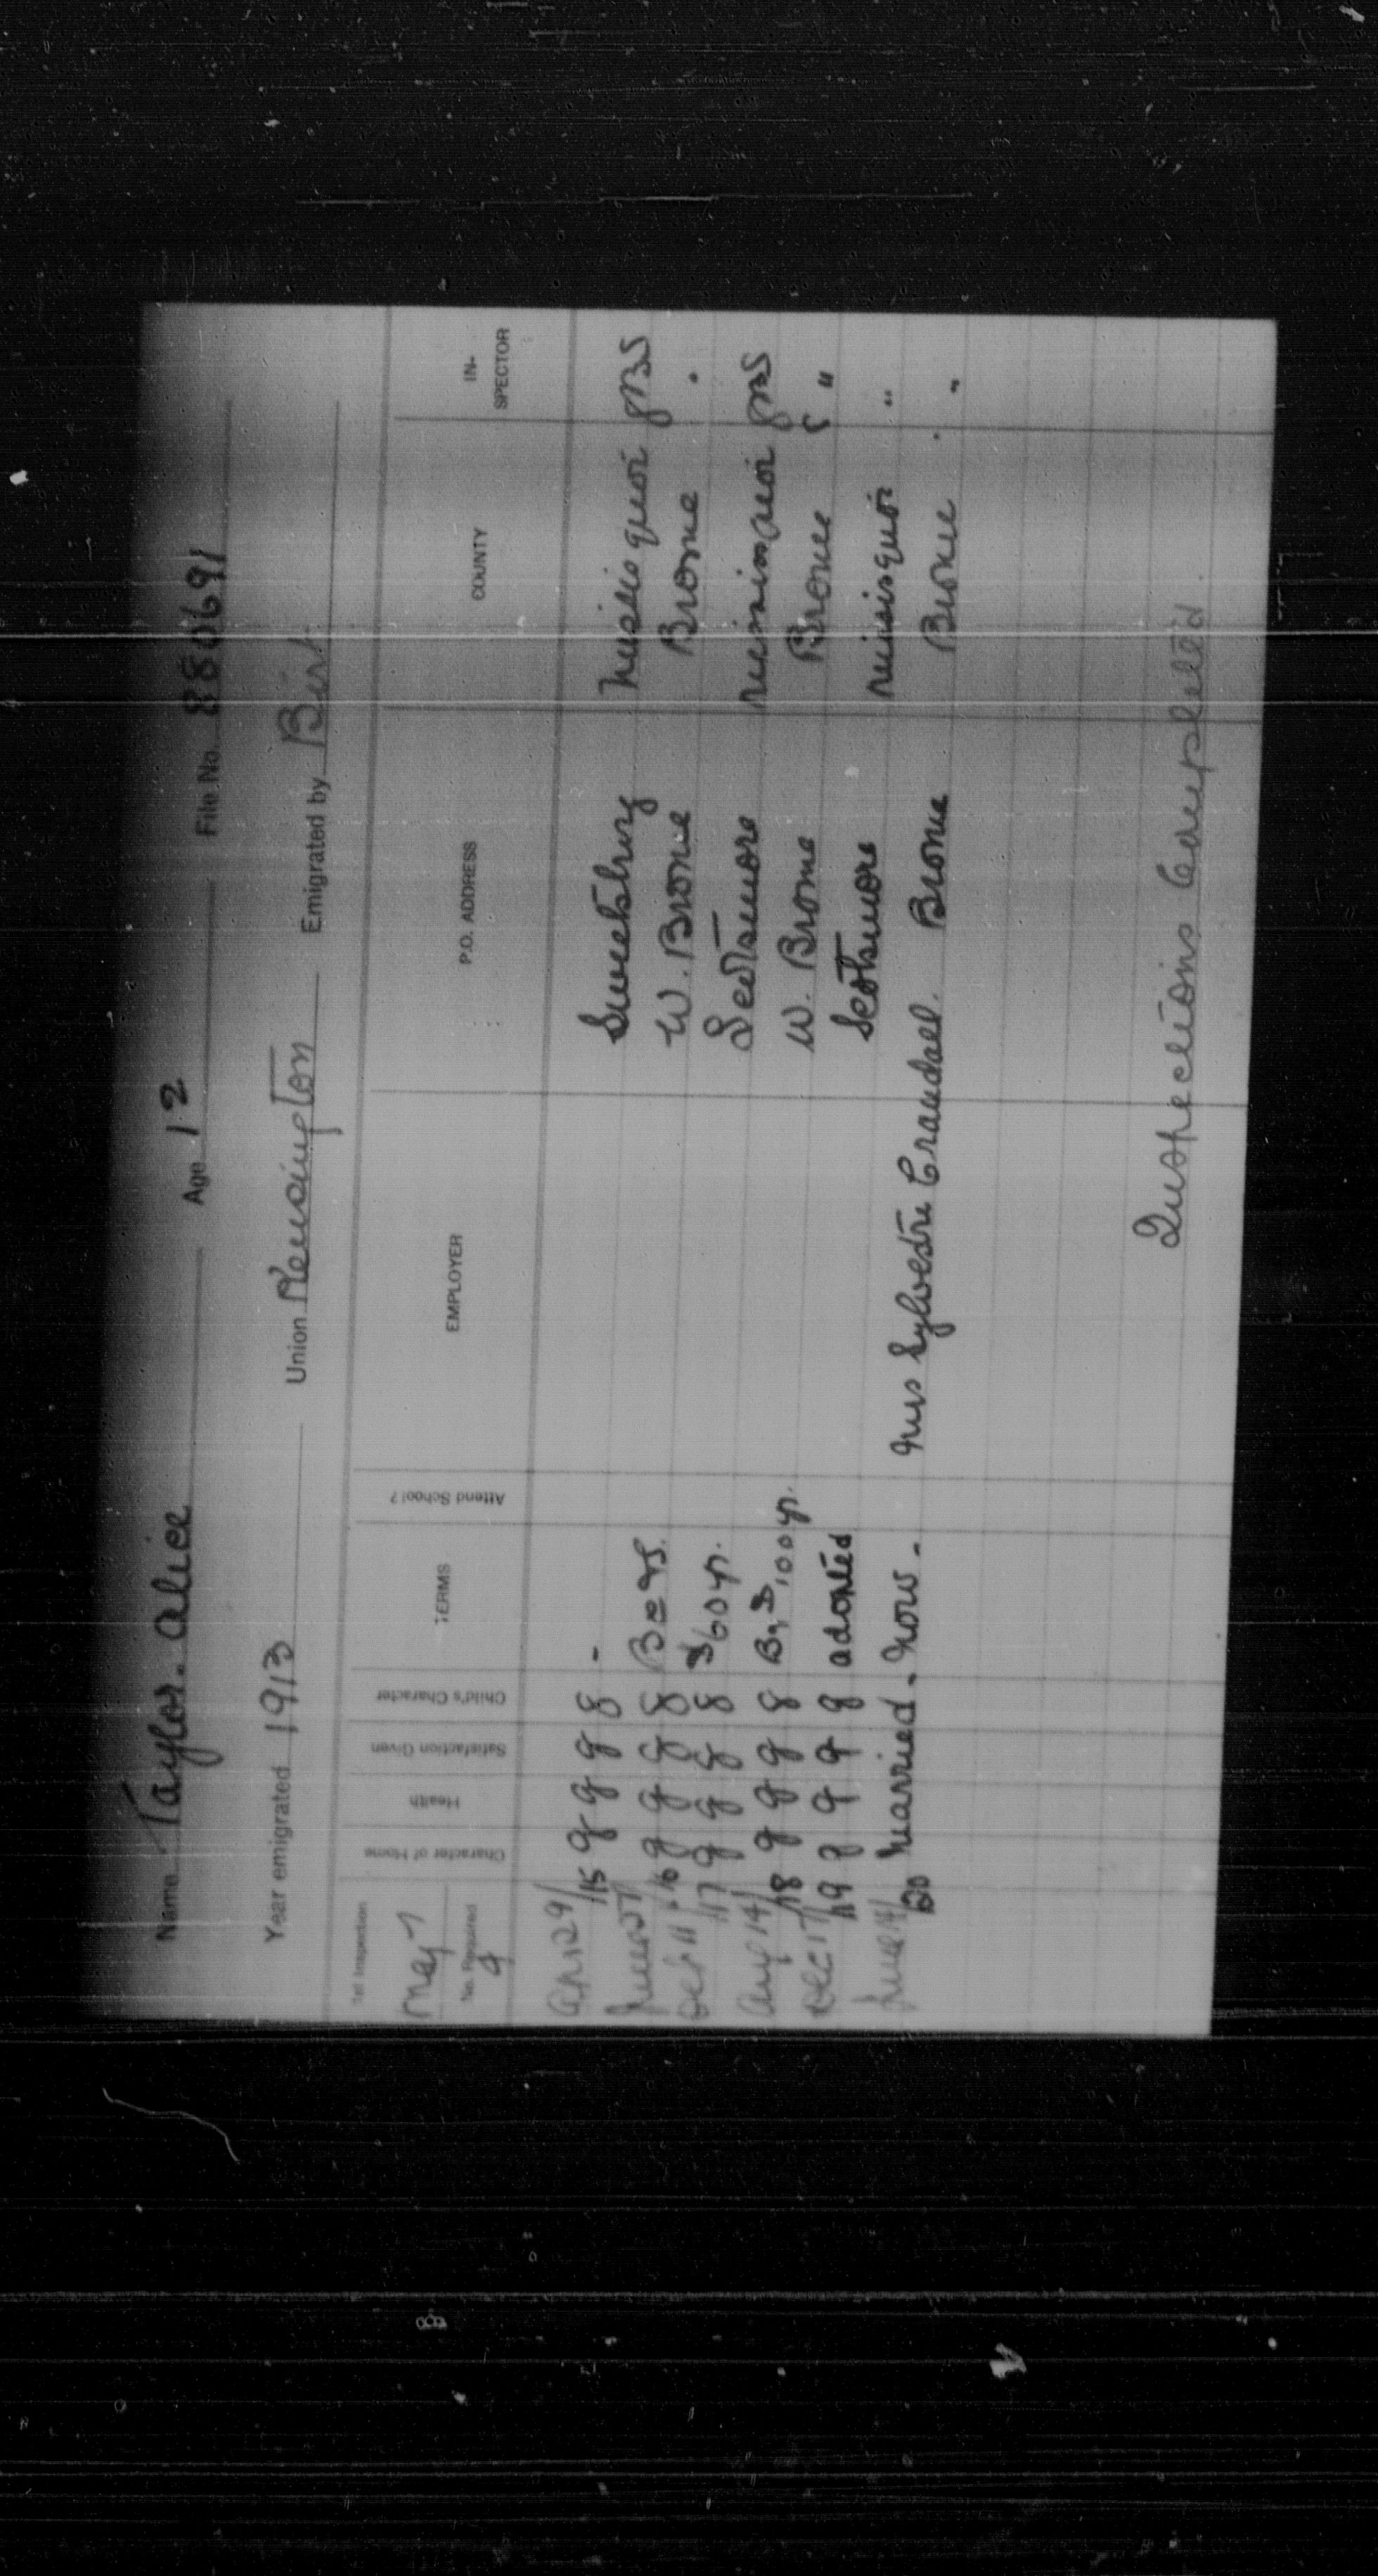 Name Taylor. Alice Age 12 File No. 880691
Year emigrated 1913 Union Plennington Emigrated by Birt
1st Inspection Character of Home Health Satisfaction Given Child's Character TERMS Attend School? EMPLOYER P.O. ADDRESS COUNTY IN-SPECTOR
May 7
No. Required 9
Apr 29/15 g g g g - Sweetsburg Missisquoi
June 27/16 g g g g W. Brome Brome "
Oct 11/17 g g g g $60 yr. Scotsmore Missisquoi
Aug 14/18 g g g g $100 yr. W. Brome Brome "
Dec 17/19 g g g g adopted Scotsmore Missisquoi "
June 14/20 Married - now - Mrs Sylvestre Crandall. Brome Brome "
Inspections Completed.